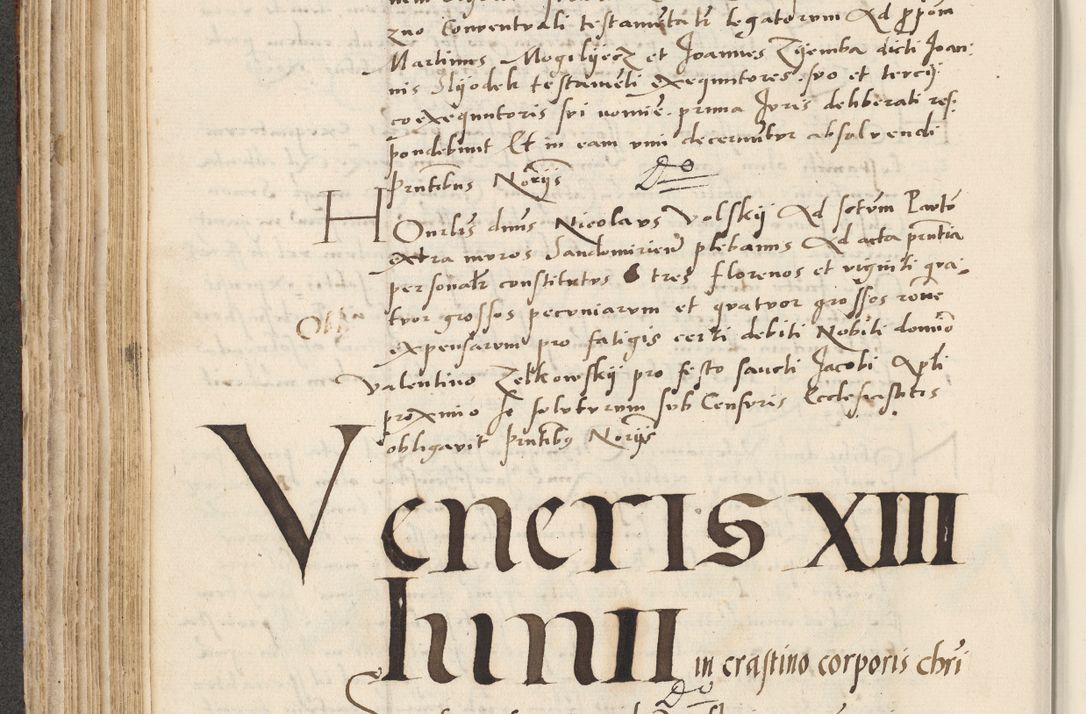 zno Conventuali testamētałr legatorum Ad ꝓpoīn
Martinus Mogilijecz et Joannes Zijemba dicti Joan
nis Slijodek testamēti exequutores suo et tercij
coexequutoris sui nomiē prima Juris deliberati res:
pondebunt Et in eam vim decernūtur absolvendi
pn̄tibus Noriis Do
HOnrlis dnus Nicolaus Volskij Ad sctūm Paulū
extra muros Sandomirieñ plebanus Ad acta pn̄tia
personalr constitutus tres florenos et viginti qua,
tuor grossos pecuniarum et quatuor grossos rōne
Obligo
expensarum pro fatigis certi debiti Nobili domīo
Valentino Zelkowskij pro festo sancti Jacobi Apli
proximo se soluturum sub Censuris Ecclesiasticis
obligavit pn̄tibus Noriis
Veneris XIII
Iunii in crastino corporis chrī
Do